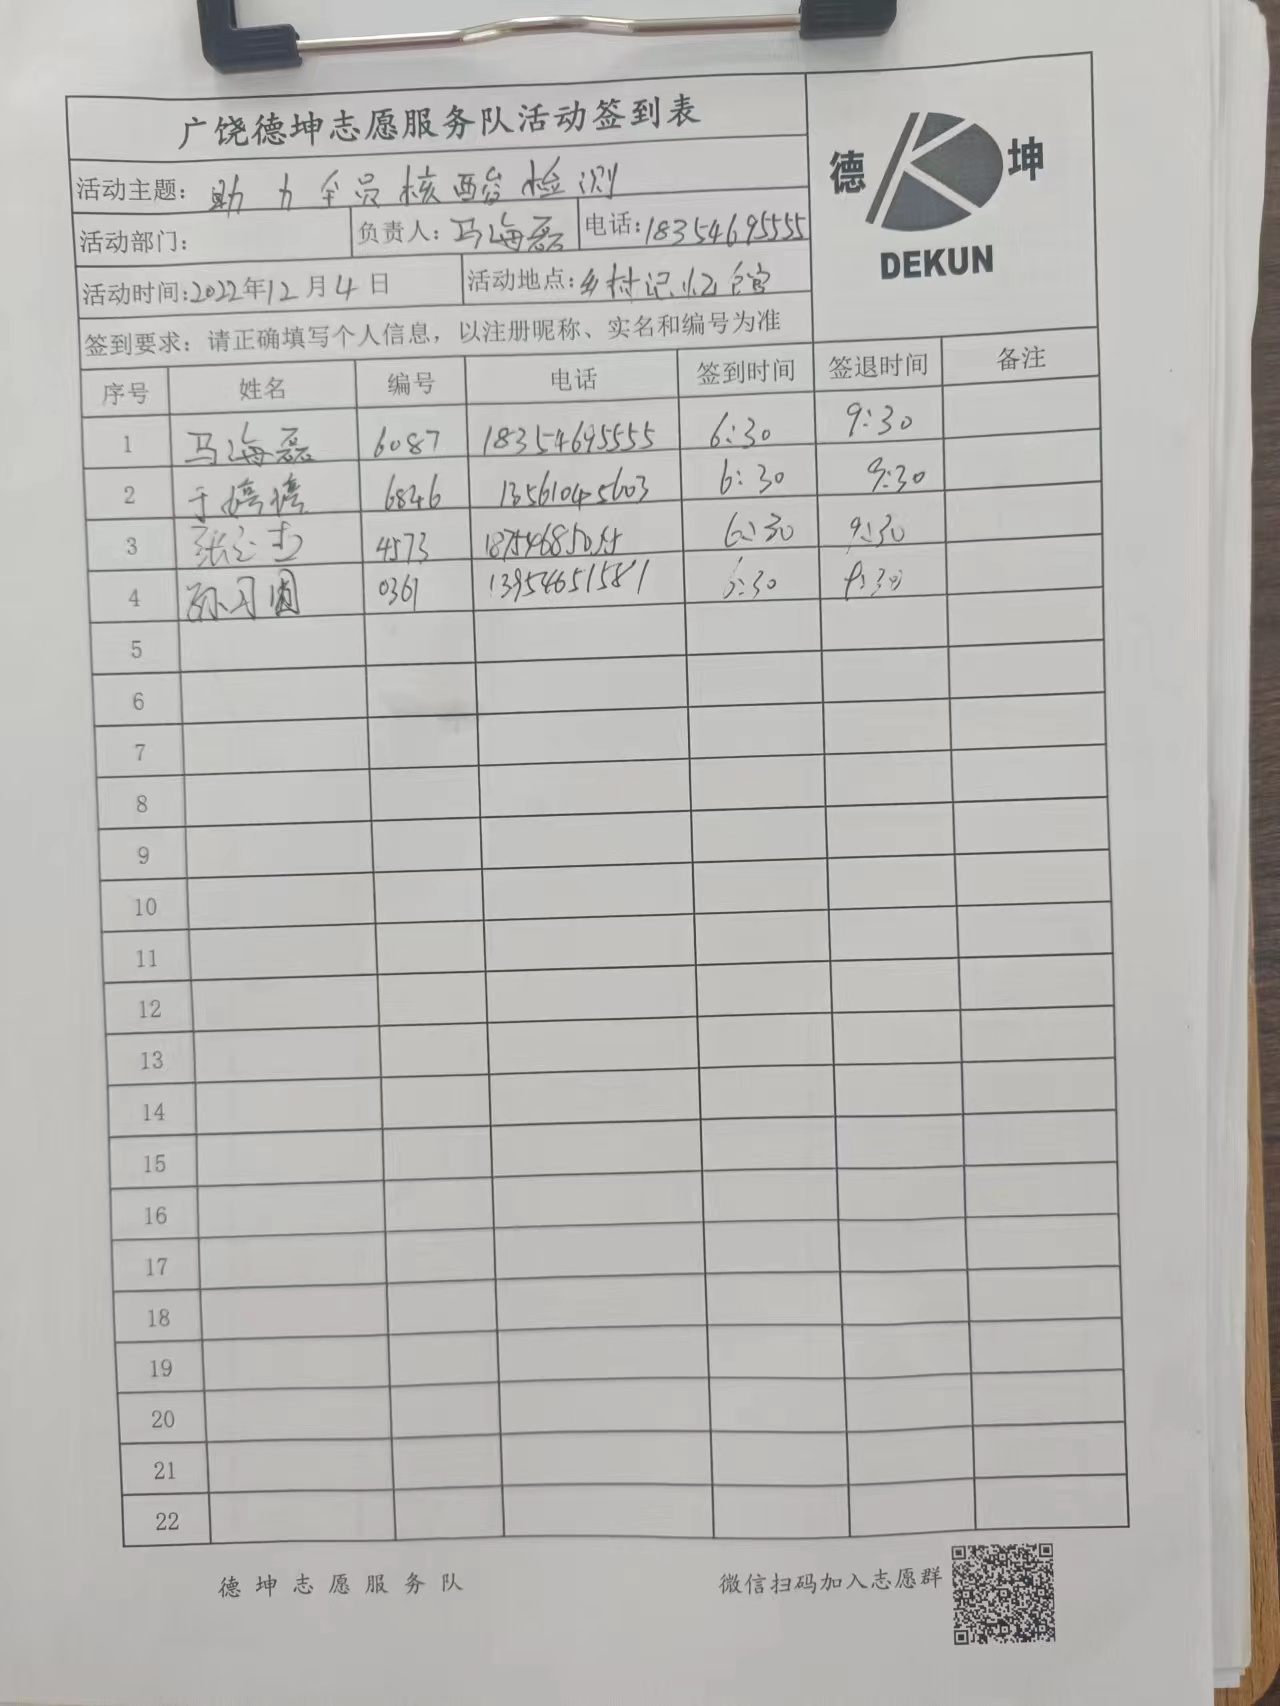 广饶德坤志愿服务队活动签到表
德 坤
DEKUN
活动主题：助力全员核酸检测
活动部门： 负责人：马海磊 电话：18354695555
活动时间：2022年12月4日 活动地点：乡村记忆馆
签到要求：请正确填写个人信息，以注册昵称、实名和编号为准
序号 姓名 编号 电话 签到时间 签退时间 备注
1 马海磊 6087 18354695555 6:30 9:30
2 于婷婷 6846 13561045603 6:30 9:30
3 4573 6:30 9:30
4 0361 13954651581 6:30 9:30
5
6
7
8
9
10
11
12
13
14
15
16
17
18
19
20
21
22
德坤志愿服务队 微信扫码加入志愿群